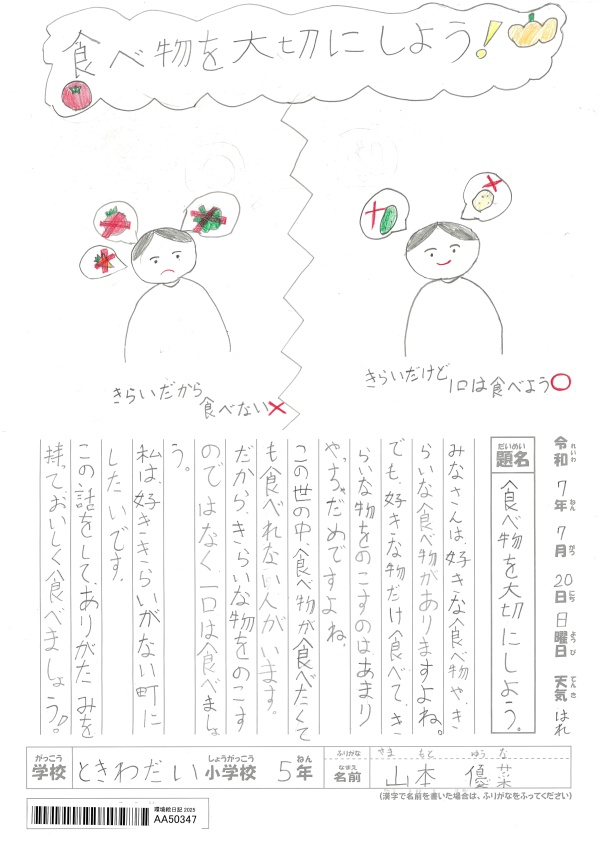 食べ物を大切にしよう!
きらいだから
食べない×
きらいだけど
一口は食べよう○
令和7年7月20日日曜日 天気 はれ
れいわ ねん がつ にち ようび てんき
だいめい
題名
食べ物を大切にしよう。
みなさんは、好きな食べ物や、き
らいな食べ物がありますよね。
でも、好きな物だけ食べて、き
らいな物をのこすのはあまり
やっちゃだめですよね。
この世の中、食べ物が食べたくて
も食べれない人がいます。
だから、きらいな物をのこす
のではなく、一口は食べましょ
う。
私は、好ききらいがない町に
したいです。
この話をして、ありがたみを
持っておいしく食べましょう!。
がっこう
学校
ときわだい
しょうがっこう
小学校
5年
ねん
ふりがな
やまもと ゆうな
なまえ
名前
山本 優菜
(漢字で名前を書いた場合は、ふりがなをふってください)
環境絵日記 2025
AA50347